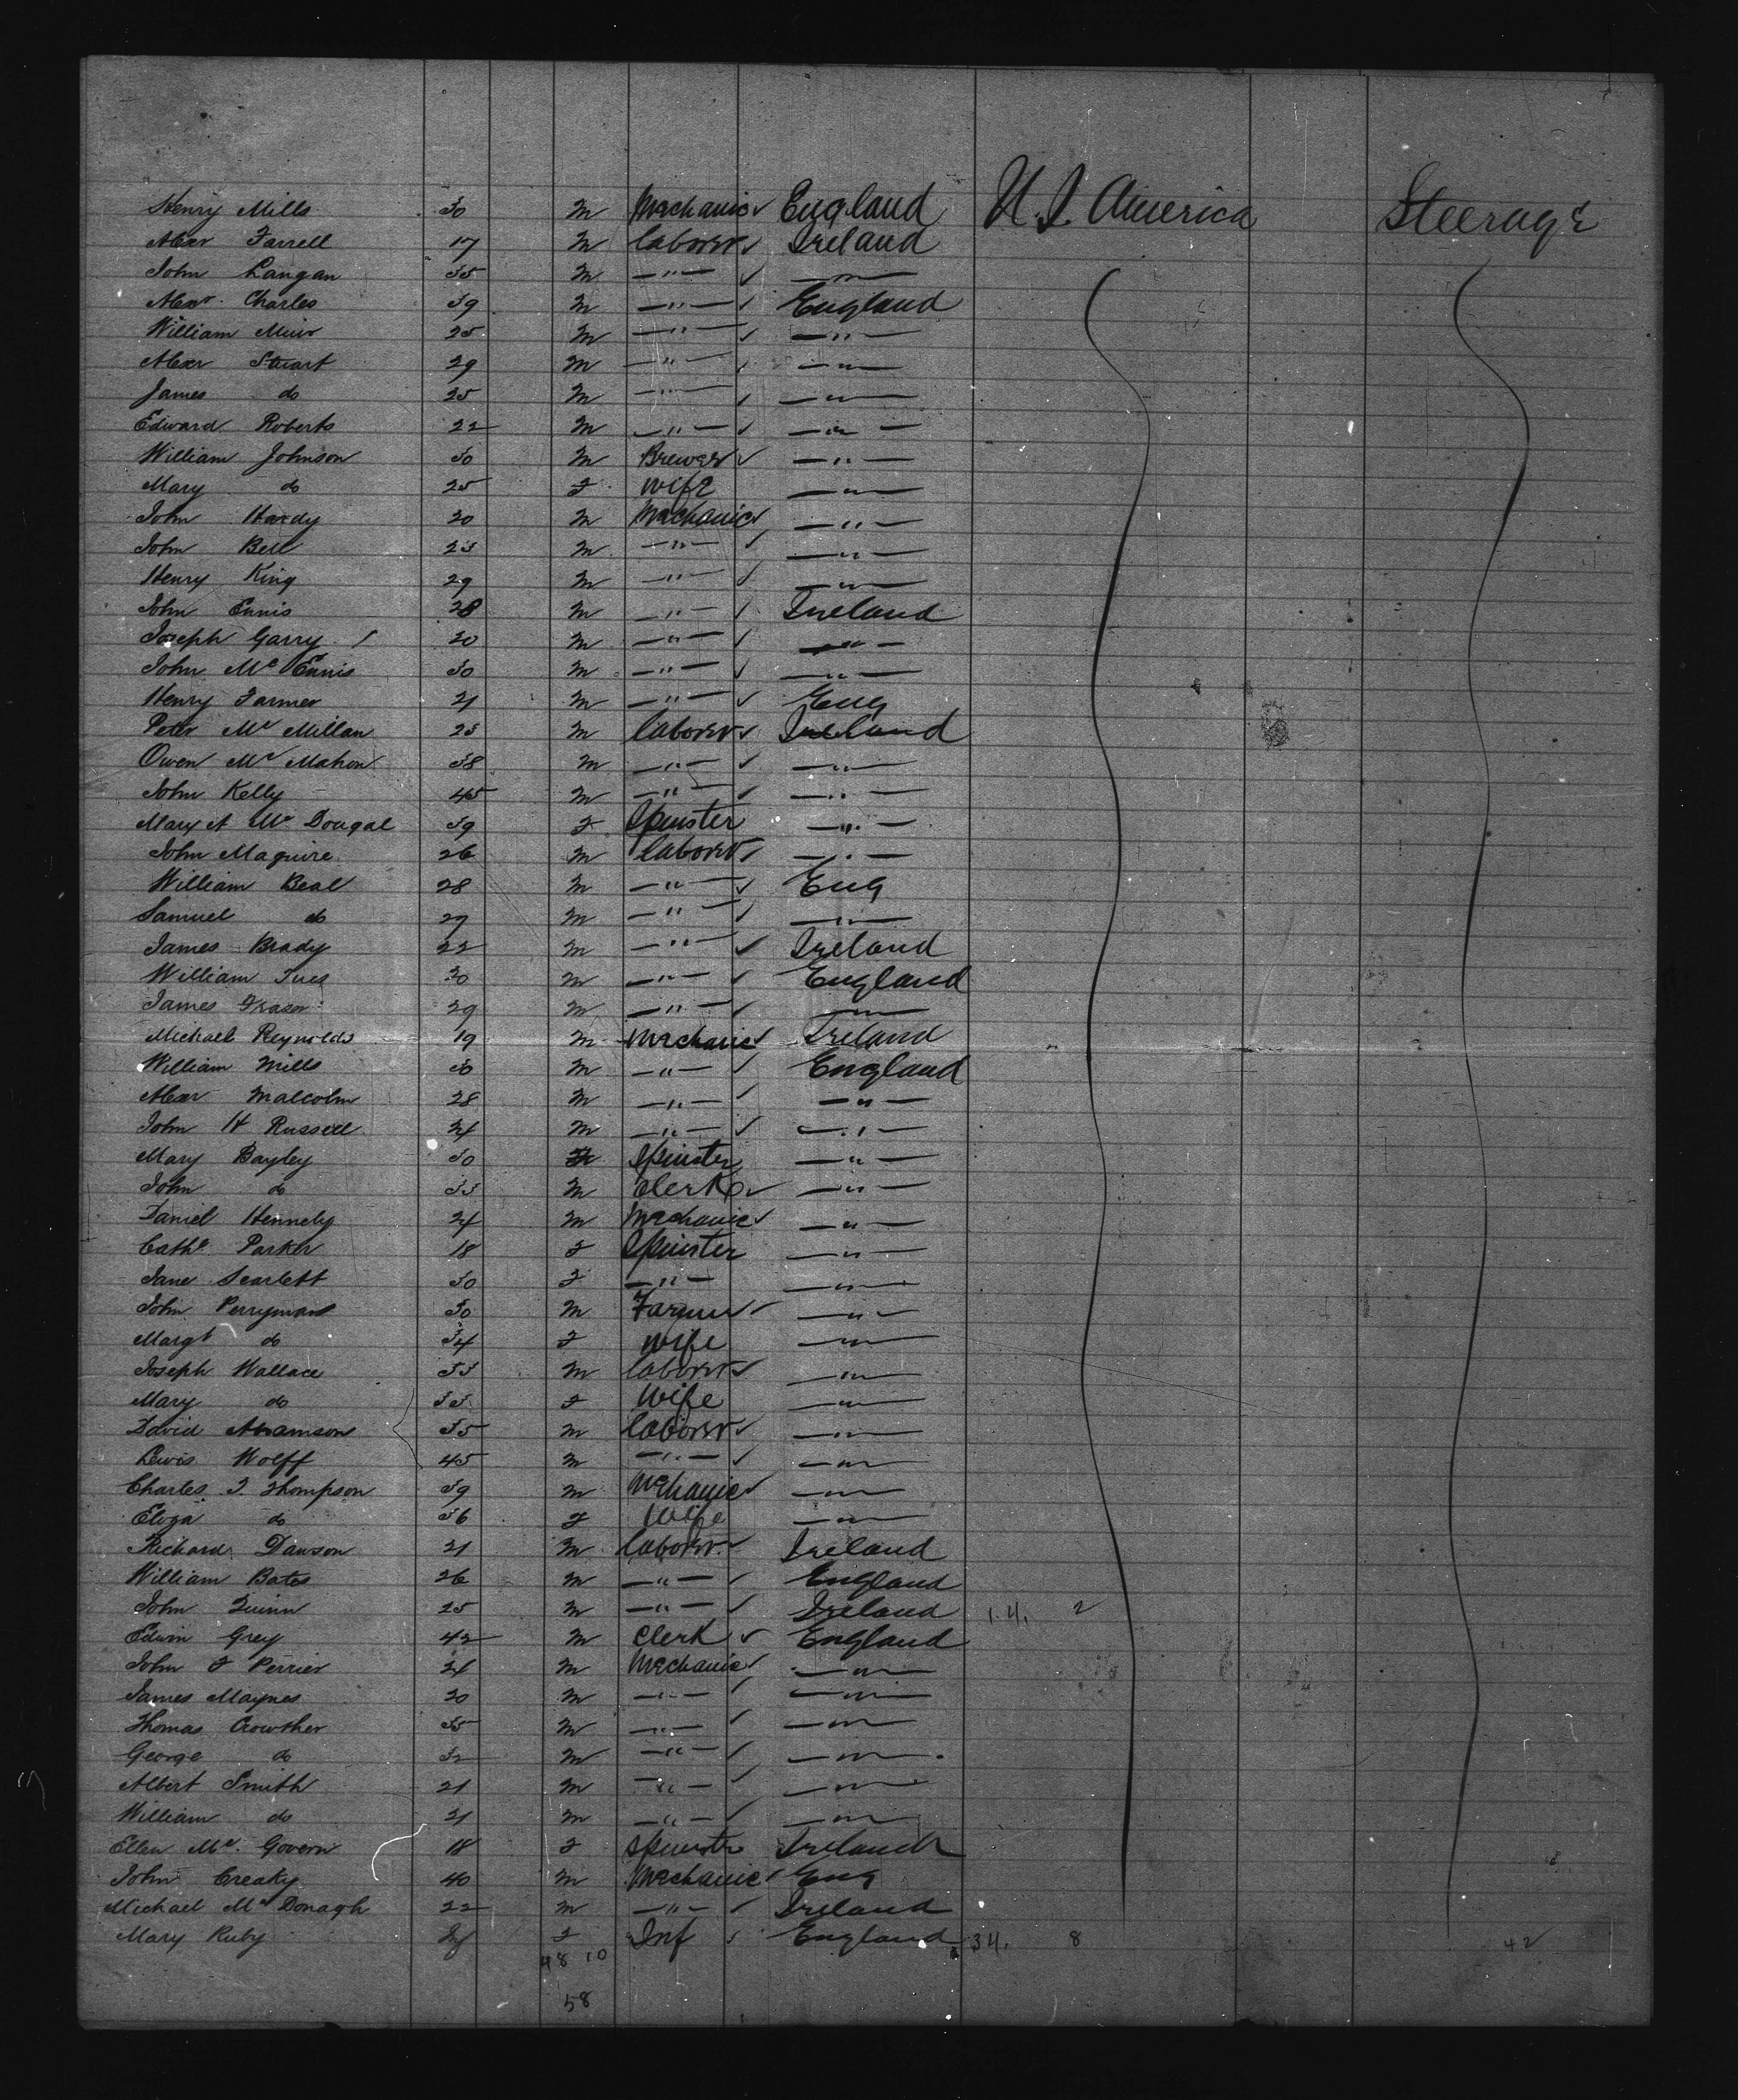 Henry Mills 30 M Mechanic England U.S. America Steerage
Alexr Farrell 17 M laborer Ireland
John Langan 35 M —"— —"—
Alexr Charles 39 M —"— England
William Muir 25 M —"— —"—
Alexr Stuart 29 M —"— —"—
James do 25 M —"— —"—
Edward Roberts 22 M —"— —"—
William Johnson 30 M Brewer —"—
Mary do 25 F wife —"—
John Hardy 20 M Mechanic —"—
John Bell 23 M —"— —"—
Henry King 29 M —"— —"—
John Ennis 28 M —"— Ireland
Joseph Garry 20 M —"— —"—
John Mc Ennis 30 M —"— —"—
Henry Farmer 21 M —"— Eng
Peter Mc Millan 23 M laborer Ireland
Owen Mc Mahon 38 M —"— —"—
John Kelly 45 M —"— —"—
Mary A Mc Dougal 39 F Spinster —"—
John Maguire 26 M laborer —"—
William Beal 28 M —"— Eng
Samuel do 29 M —"— —"—
James Brady 22 M —"— Ireland
William 30 M —"— England
James Frazer 29 M —"— —"—
Michael Reynolds 19 M Mechanic Ireland
William Mills 30 M —"— England
Alexr Malcolm 28 M —"— —"—
John H Russell 24 M —"— —"—
Mary Bayley 30 F Spinster —"—
John do 33 M Clerk —"—
Daniel Hennely 24 M Mechanic —"—
Cathe Parker 18 F Spinster —"—
Jane Scarlett 30 F —"— —"—
John Perryman 30 M Farmer —"—
Margt do 34 F wife —"—
Joseph Wallace 33 M laborer —"—
Mary do 33 F Wife —"—
David Abramson 35 M laborer —"—
Lewis Wolff 45 M —"— —"—
Charles T. Thompson 39 M Mchanic —"—
Eliza do 36 F Wife —"—
Richard Dawson 21 M laborer Ireland
William Bates 26 M —"— England
John Quinn 25 M —"— Ireland 14. 2
Edwin Grey 42 M Clerk England
John F Perrier 24 M Mechanic —"—
James Maynes 20 M —"— —"—
Thomas Crowther 35 M —"— —"—
George do 32 M —"— —"—
Albert Smith 21 M —"— —"—
William do 21 M —"— —"—
Ellen Mc Govern 18 F Spinster Ireland
John Creaky 40 M Mechanic Eng
Michael Mc Donagh 22 M —"— Ireland
Mary Ruby F Inf England 34. 8 42
48 10
58